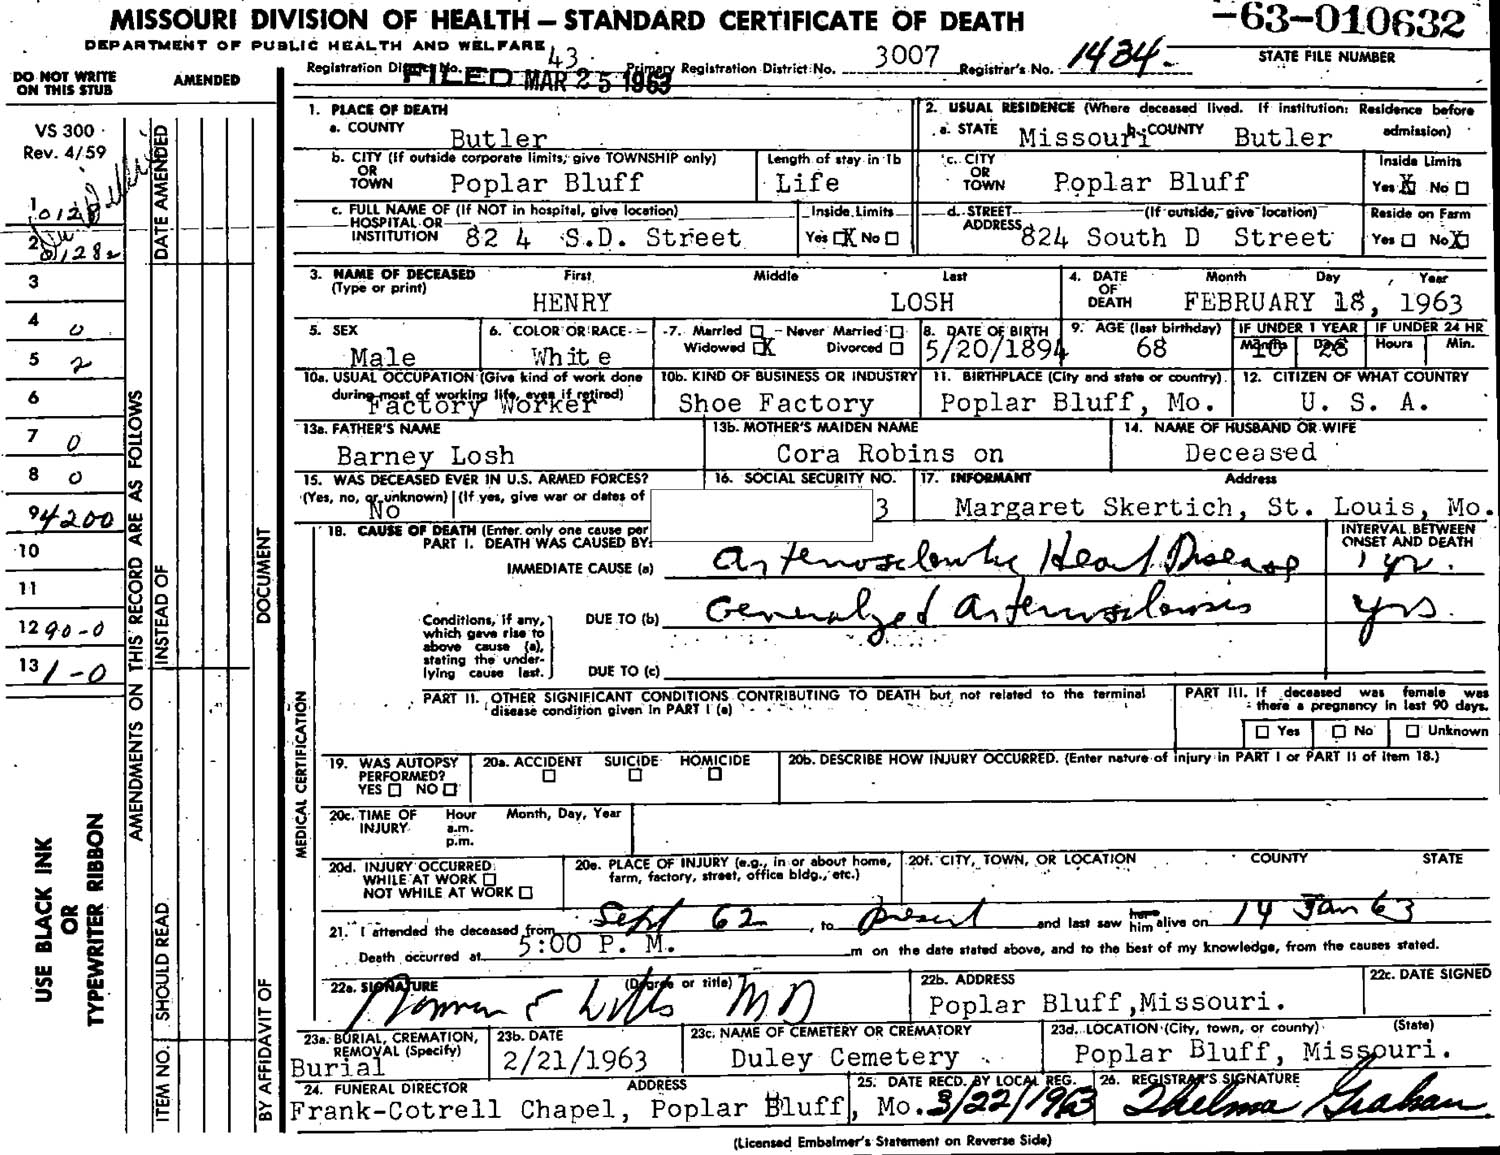 MISSOURI DIVISION OF HEALTH — STANDARD CERTIFICATE OF DEATH
-63-010632
DEPARTMENT OF PUBLIC HEALTH AND WELFARE
STATE FILE NUMBER
Registration District No. 43 Primary Registration District No. 3007 Registrar's No. 1434
FILED MAR 25 1963
DO NOT WRITE ON THIS STUB
AMENDED
VS 300
Rev. 4/59
1 0128
2 128
3
4 0
5 2
6
7 0
8 0
9 4200
10
11
12 90-0
13 1-0
USE BLACK INK
OR
TYPEWRITER RIBBON
AMENDMENTS ON THIS RECORD ARE AS FOLLOWS
DATE AMENDED
INSTEAD OF
ITEM NO. SHOULD READ
DOCUMENT
BY AFFIDAVIT OF
MEDICAL CERTIFICATION
1. PLACE OF DEATH
a. COUNTY Butler
2. USUAL RESIDENCE (Where deceased lived. If institution: Residence before admission)
a. STATE Missouri b. COUNTY Butler
b. CITY (If outside corporate limits, give TOWNSHIP only) OR TOWN Poplar Bluff
Length of stay in 1b Life
c. CITY OR TOWN Poplar Bluff
Inside Limits Yes X No
c. FULL NAME OF (If NOT in hospital, give location) HOSPITAL OR INSTITUTION 82 4 S.D. Street
Inside Limits Yes X No
d. STREET ADDRESS (If outside, give location) 824 South D Street
Reside on Farm Yes No X
3. NAME OF DECEASED (Type or print) First Middle Last
HENRY LOSH
4. DATE OF DEATH Month Day Year
FEBRUARY 18, 1963
5. SEX Male
6. COLOR OR RACE White
7. Married Never Married Widowed X Divorced
8. DATE OF BIRTH 5/20/1894
9. AGE (last birthday) 68
IF UNDER 1 YEAR Months Days
IF UNDER 24 HR Hours Min.
10a. USUAL OCCUPATION (Give kind of work done during most of working life, even if retired) Factory Worker
10b. KIND OF BUSINESS OR INDUSTRY Shoe Factory
11. BIRTHPLACE (City and state or country) Poplar Bluff, Mo.
12. CITIZEN OF WHAT COUNTRY U. S. A.
13a. FATHER'S NAME Barney Losh
13b. MOTHER'S MAIDEN NAME Cora Robins on
14. NAME OF HUSBAND OR WIFE Deceased
15. WAS DECEASED EVER IN U.S. ARMED FORCES? (Yes, no, or unknown) (If yes, give war or dates of
No
16. SOCIAL SECURITY NO. 3
17. INFORMANT Address
Margaret Skertich, St. Louis, Mo.
18. CAUSE OF DEATH (Enter only one cause per
PART I. DEATH WAS CAUSED BY:
INTERVAL BETWEEN ONSET AND DEATH
IMMEDIATE CAUSE (a) Arteriosclerotic Heart Disease 1 yr.
Conditions, if any, which gave rise to above cause (a), stating the underlying cause last.
DUE TO (b) Generalized Arteriosclerosis yrs.
DUE TO (c)
PART II. OTHER SIGNIFICANT CONDITIONS CONTRIBUTING TO DEATH but not related to the terminal disease condition given in PART I (a)
PART III. If deceased was female was there a pregnancy in last 90 days.
Yes No Unknown
19. WAS AUTOPSY PERFORMED? YES NO
20a. ACCIDENT SUICIDE HOMICIDE
20b. DESCRIBE HOW INJURY OCCURRED. (Enter nature of injury in PART I or PART II of item 18.)
20c. TIME OF INJURY Hour a.m. p.m. Month, Day, Year
20d. INJURY OCCURRED WHILE AT WORK NOT WHILE AT WORK
20e. PLACE OF INJURY (e.g., in or about home, farm, factory, street, office bldg., etc.)
20f. CITY, TOWN, OR LOCATION COUNTY STATE
21. I attended the deceased from Sept 62, to present and last saw her him alive on 14 Jan 63
Death occurred at 5:00 P. M. m on the date stated above, and to the best of my knowledge, from the causes stated.
22a. SIGNATURE (Degree or title) MD
22b. ADDRESS Poplar Bluff, Missouri.
22c. DATE SIGNED
23a. BURIAL, CREMATION, REMOVAL (Specify) Burial
23b. DATE 2/21/1963
23c. NAME OF CEMETERY OR CREMATORY Duley Cemetery
23d. LOCATION (City, town, or county) (State) Poplar Bluff, Missouri.
24. FUNERAL DIRECTOR ADDRESS
Frank-Cotrell Chapel, Poplar Bluff, Mo.
25. DATE RECD. BY LOCAL REG. 3/22/1963
26. REGISTRAR'S SIGNATURE Thelma Graham
(Licensed Embalmer's Statement on Reverse Side)